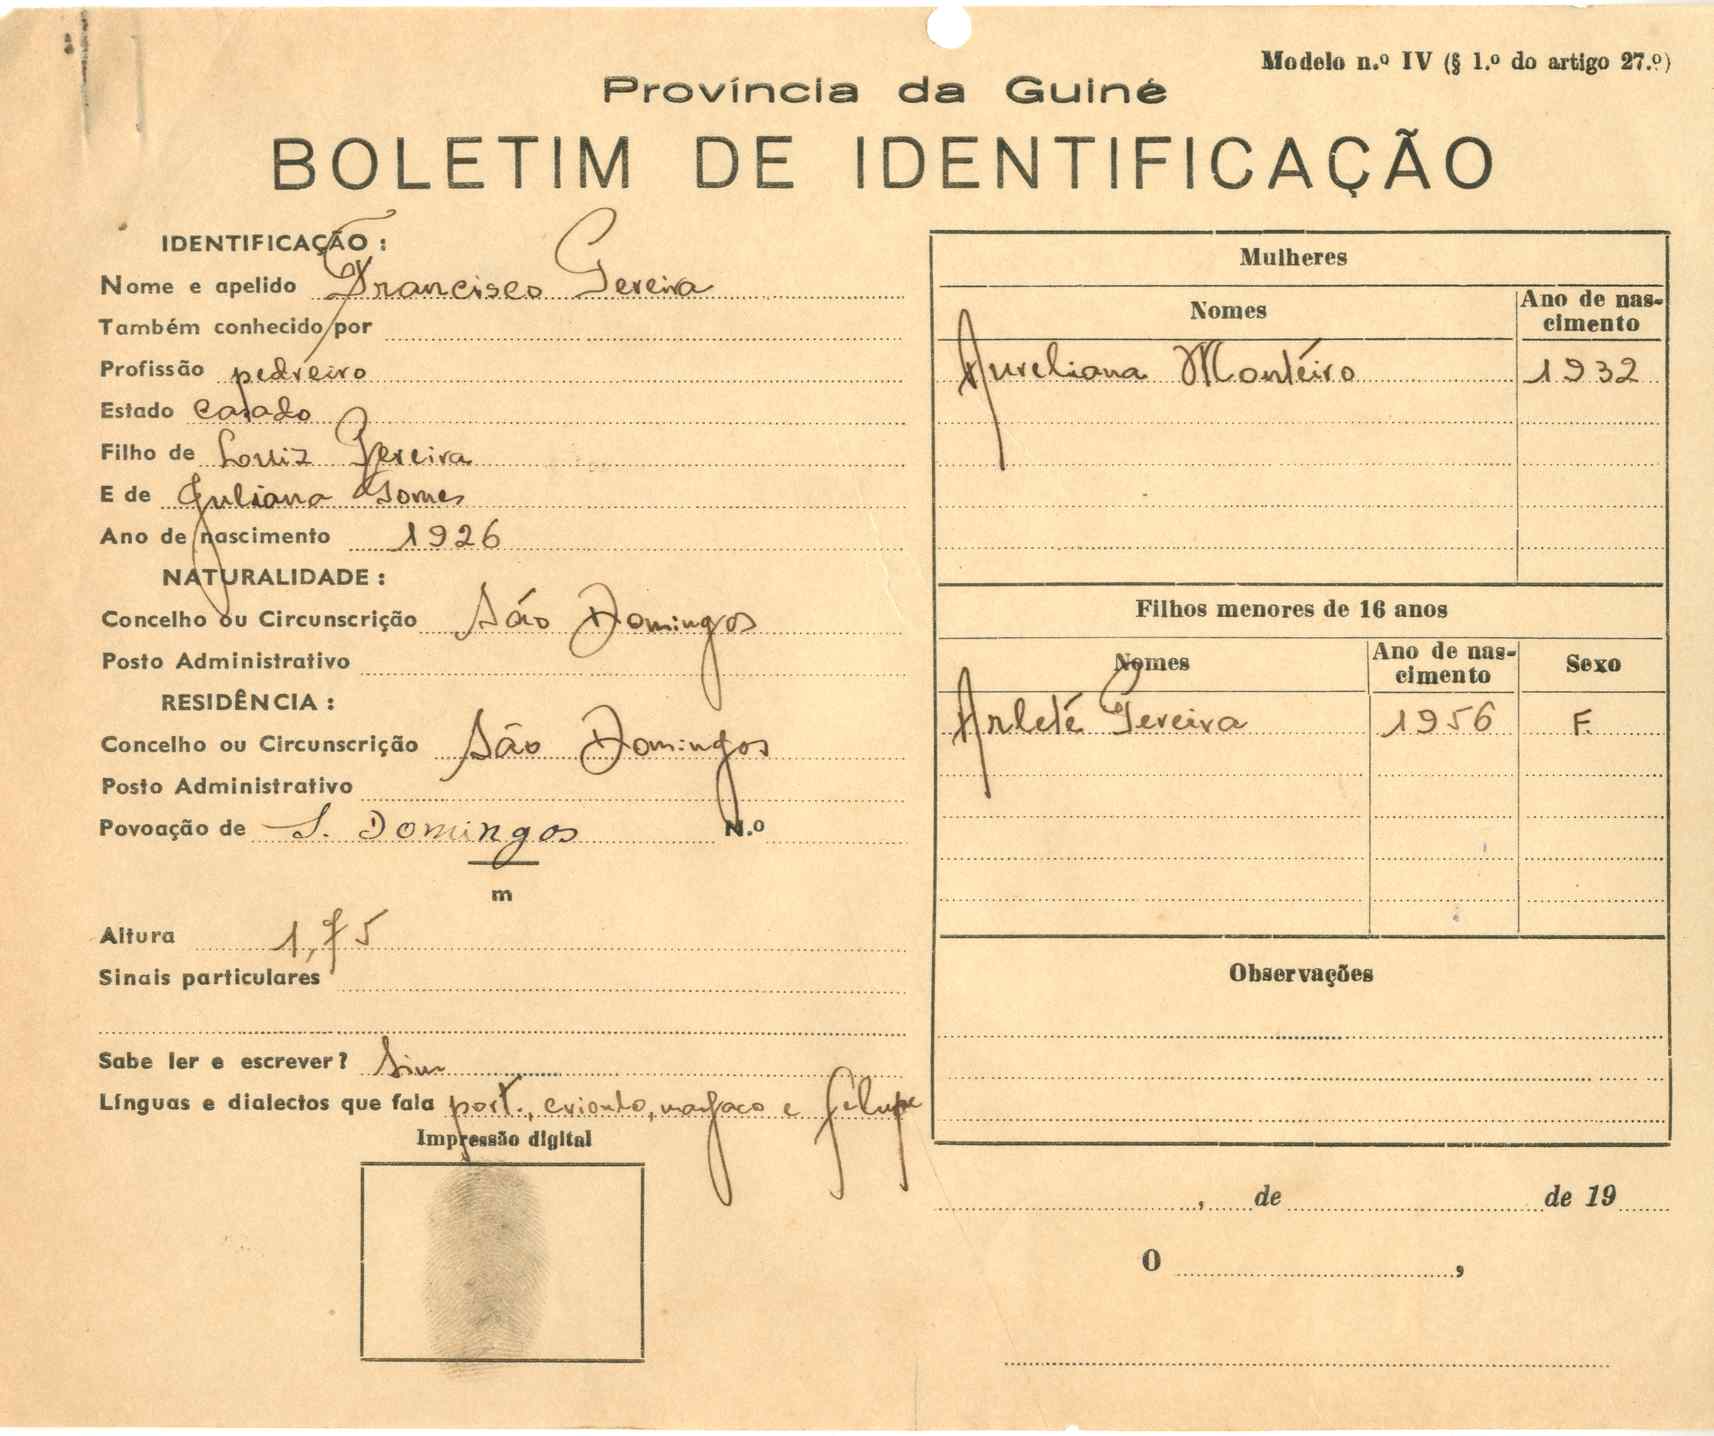 Modelo n.º IV (§ 1.º do artigo 27.º)
Província da Guiné
BOLETIM DE IDENTIFICAÇÃO
IDENTIFICAÇÃO :
Nome e apelido Francisco Pereira
Também conhecido por
Profissão pedreiro
Estado casado
Filho de Louiz Pereira
E de Juliana Gomes
Ano de nascimento 1926
NATURALIDADE :
Concelho ou Circunscrição São Domingos
Posto Administrativo
RESIDÊNCIA :
Concelho ou Circunscrição São Domingos
Posto Administrativo
Povoação de S. Domingos N.º
m
Altura 1,75
Sinais particulares
Sabe ler e escrever? Sim
Línguas e dialectos que fala port., crioulo, manjaco e felupe
Impressão digital
Mulheres
Nomes Ano de nas-
cimento
Aureliana Montéiro 1932
Filhos menores de 16 anos
Nomes Ano de nas-
cimento Sexo
Arleté Pereira 1956 F.
Observações
, de de 19
O ,